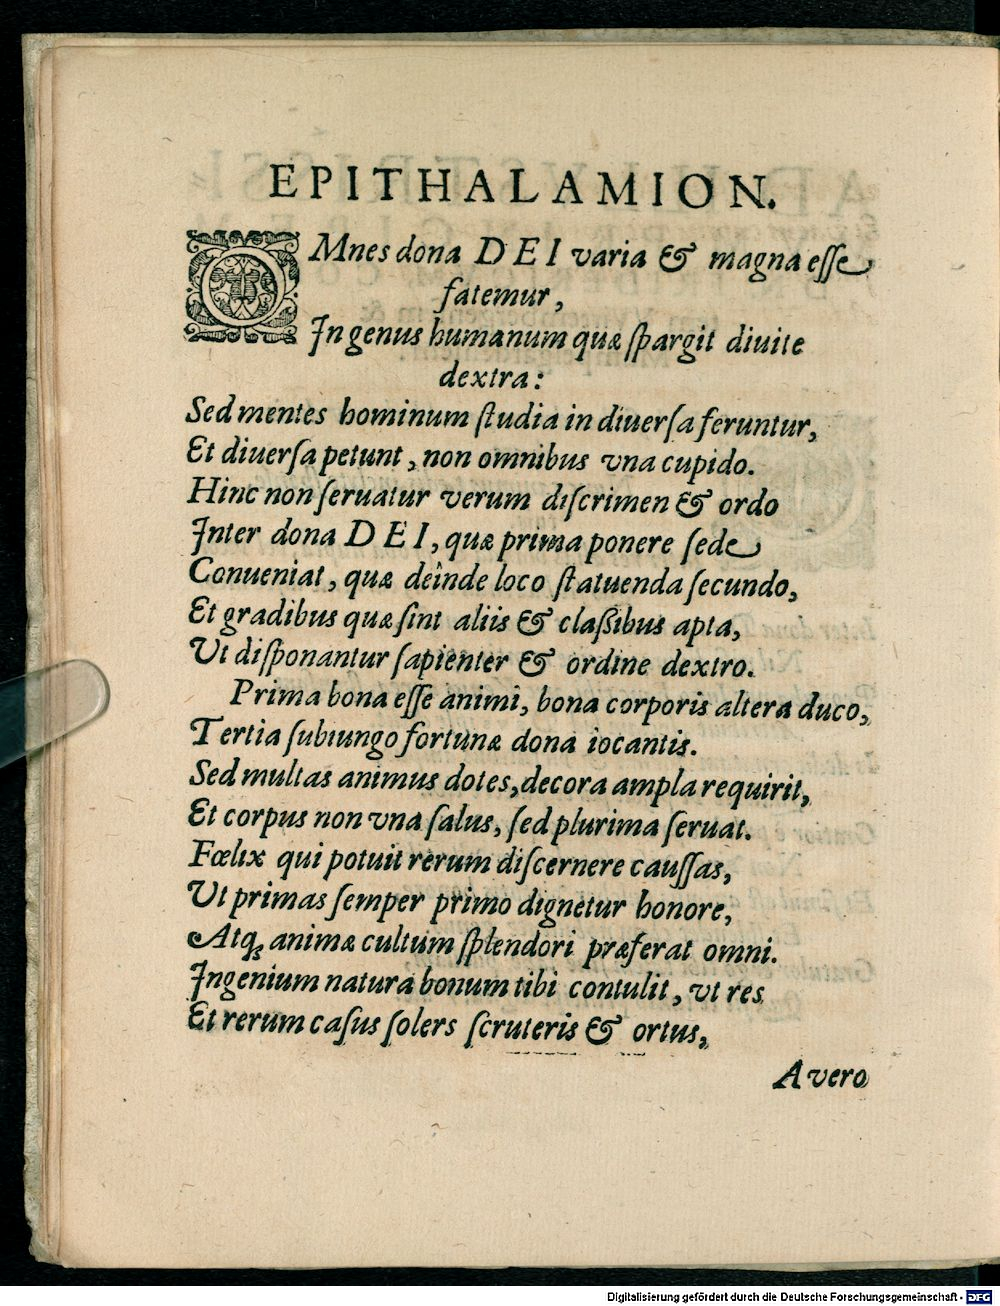 EPITHALAMION.
OMnes dona DEI varia & magna eſſe
fatemur,
In genus humanum quæ ſpargit diuite
dextra:
Sed mentes hominum ſtudia in diuerſa feruntur,
Et diuerſa petunt, non omnibus vna cupido.
Hinc non ſeruatur verum diſcrimen & ordo
Inter dona DEI, quæ prima ponere ſede
Conueniat, quæ deînde loco ſtatuenda ſecundo,
Et gradibus quæ ſint aliis & claßibus apta,
Ut diſponantur ſapienter & ordine dextro.
Prima bona eſſe animi, bona corporis altera duco,
Tertia ſubiungo fortunæ dona iocantis.
Sed multas animus dotes, decora ampla requirit,
Et corpus non vna ſalus, ſed plurima ſeruat.
Fœlix qui potuit rerum diſcernere cauſſas,
Ut primas ſemper primo dignetur honore,
Atq; animæ cultum ſplendori præferat omni.
Ingenium natura bonum tibi contulit, vt res
Et rerum caſus ſolers ſcruteris & ortus,
A vero
Digitalisierung gefördert durch die Deutsche Forschungsgemeinschaft - DFG